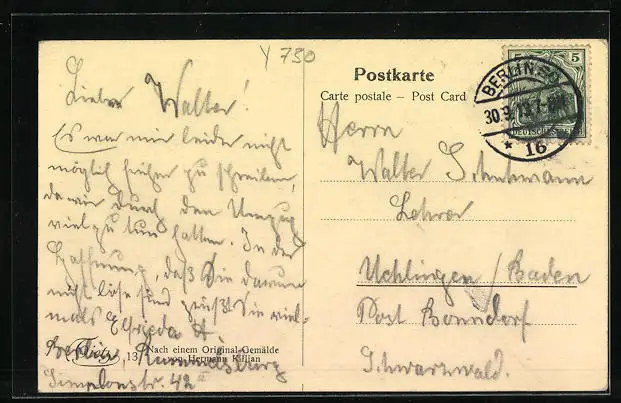 Y 750
Postkarte
Carte postale – Post Card
BERLIN
30.9.
* 16
5
DEUTSCHES REICH
Lieber Walter!
Es war mir leider nicht
möglich früher zu schreiben,
da wir durch den Umzug
viel zu tun hatten. In der
Hoffnung, daß Sie darum
nicht böse sind grüßt Sie viel-
mals Elfrieda
Berlin, Rummelsburg
Simplonstr. 42 II
Nach einem Original-Gemälde
von Hermann Killian
Herrn
Walter Schuhmann
Lehrer
Uehlingen / Baden
Post Bonndorf
Schwarzwald.